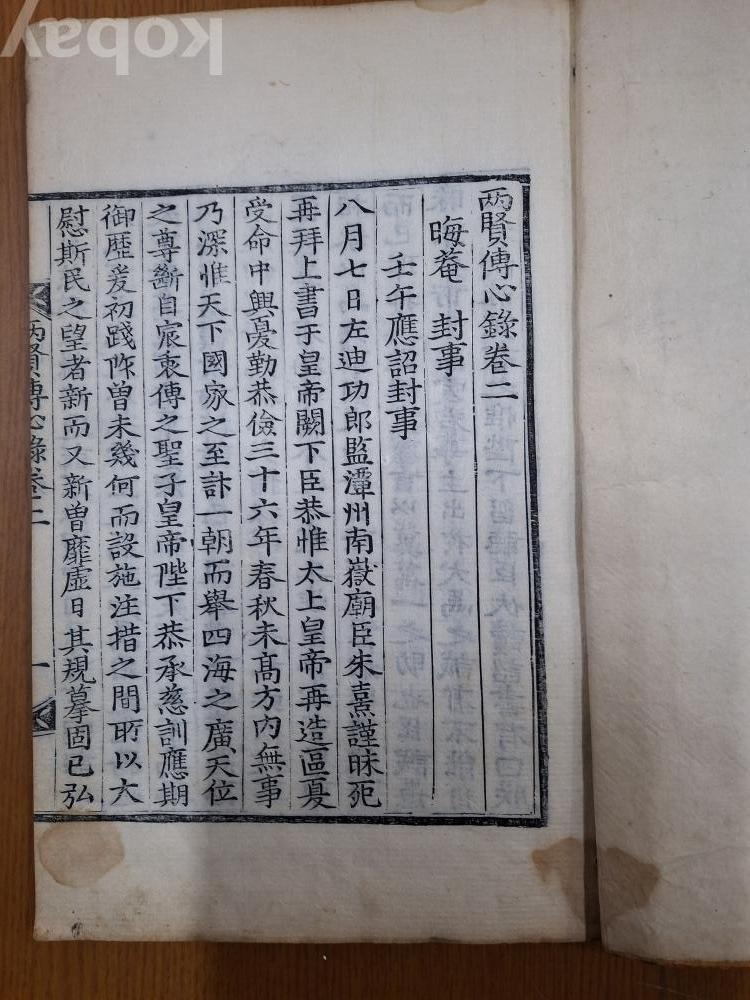 両賢傳心錄卷二
晦菴 封事
壬午應詔封事
八月七日左迪功郎監潭州南嶽廟臣朱熹謹昧死
再拜上書于皇帝闕下臣恭惟太上皇帝再造區夏
受命中興憂勤恭儉三十六年春秋未髙方內無事
乃深惟天下國家之至計一朝而舉四海之廣天位
之尊斷自宸衷傳之聖子皇帝陛下恭承慈訓應期
御歷爰初踐阼曾未幾何而設施注措之間所以大
慰斯民之望者新而又新曾靡虛日其規摹固已弘
両賢傳心錄卷二
一
kobay